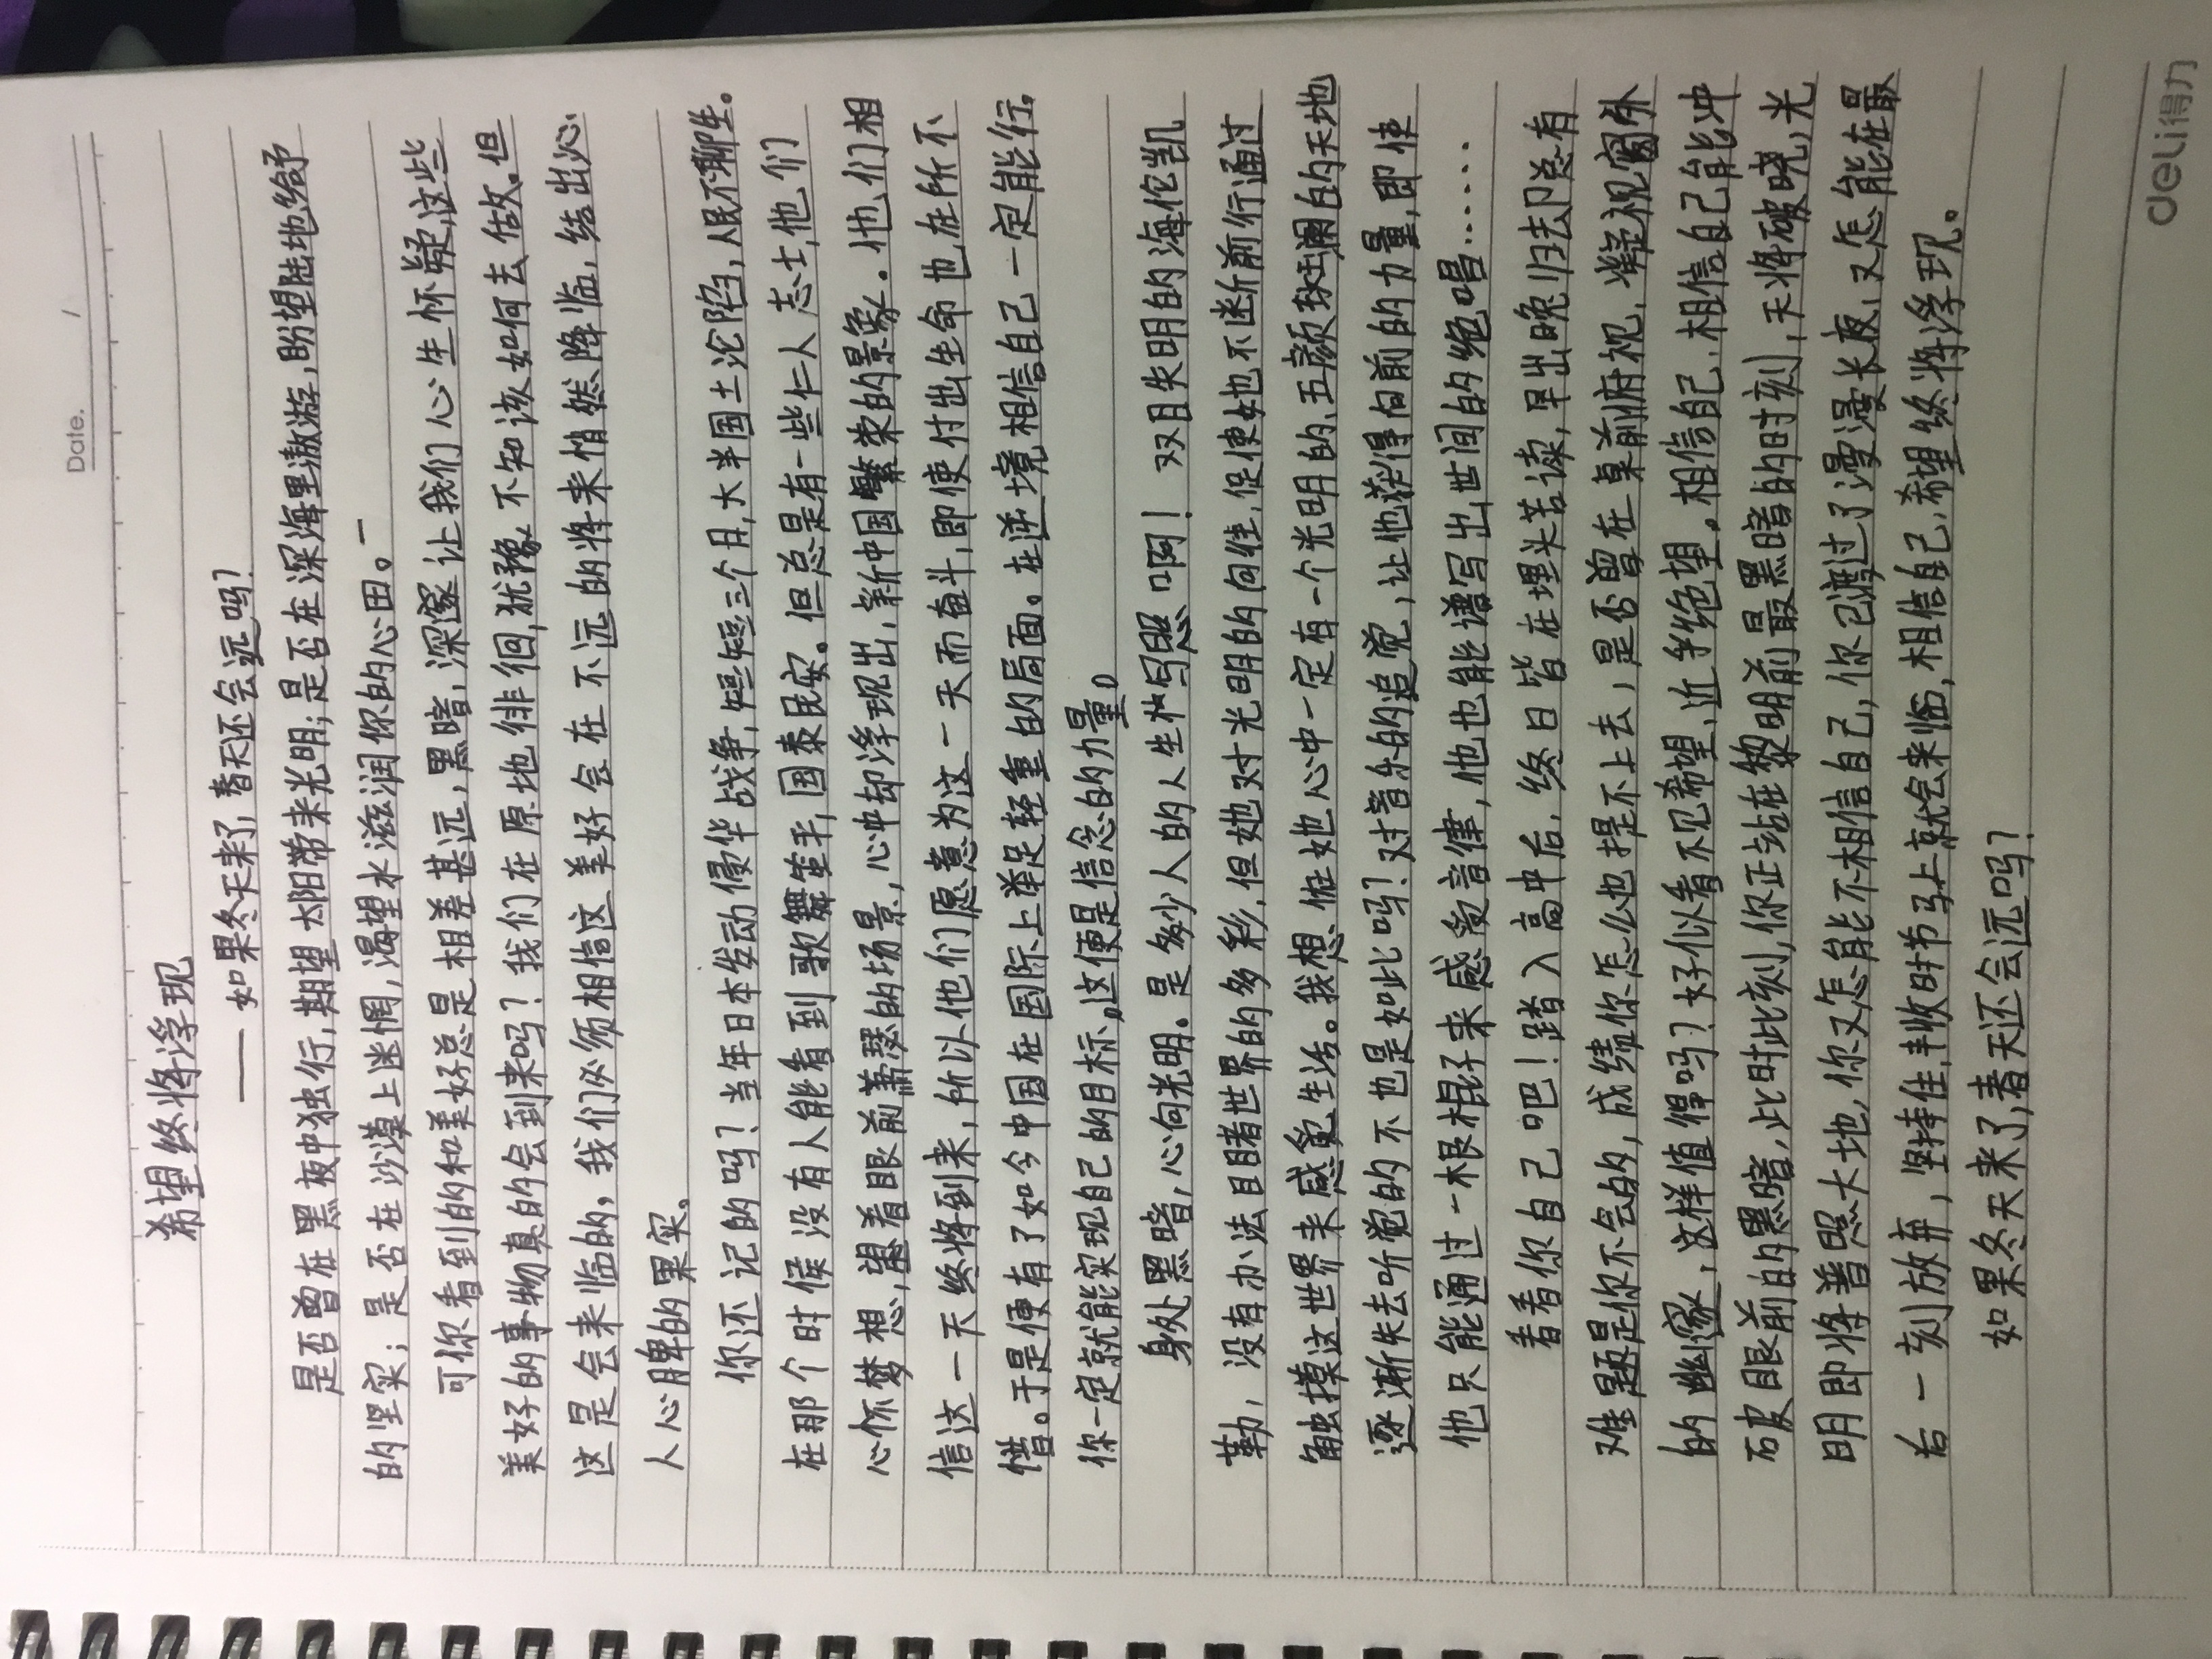 Date. /
希望终将浮现
——如果冬天来了,春天还会远吗?
是否曾在黑夜中独行,期望太阳带来光明;是否在深海里遨游,盼望陆地给予
的坚实;是否在沙漠上迷惘,渴望水滋润你的心田。
可你看到的和美好总是相差甚远,黑暗,深邃让我们心生怀疑,这些
美好的事物真的会到来吗?我们在原地徘徊,犹豫,不知该如何去做.但
这是会来临的,我们必须相信这美好会在不远的将来悄然降临,结出沁
人心脾的果实。
你还记的吗?当年日本发动侵华战争,短短三个月,大半国土沦陷,人民不聊生。
在那个时侯没有人能看到歌舞笙平,国泰民安。但总是有一些仁人志士,他们
心怀梦想,望着眼前萧瑟的场景,心中却浮现出,新中国繁荣的景象.他们相
信这一天终将到来,所以他们愿意为这一天而奋斗,即使付出生命也在所不
惜。于是便有了如今中国在国际上举足轻重的局面。在逆境相信自己一定能行,
你一定就能实现自己的目标,这便是信念的力量。
身处黑暗,心向光明.是多少人的人生和写照啊!双目失明的海伦凯
勒,没有办法目睹世界的多彩,但她对光明的向往,促使她不断前行通过
触摸这世界来感觉生活。我想,在她心中一定有一个光明的,五颜斑斓的天地
逐渐失去听觉的不也是如此吗?对音乐的追觉,让他获得向前的力量,即使
他只能通过一根棍子来感受音律,他也能谱写出世间的绝唱……
看看你自己吧!踏入高中后,终日皆在埋头苦读,早出晚归去却总有
难题是你不会的,成绩你怎么也提不上去,是否曾在桌前俯视,凝视窗外
的幽邃,这样值得吗?好似看不见希望,近乎绝望。相信自己,相信自己能冲
破眼前的黑暗,此时此刻,你正站在黎明前最黑暗的时刻,天将破晓,光
明即将普照大地,你又怎能不相信自己,你已渡过了漫漫长夜,又怎能在最
后一刻放弃,坚持住,丰收时节马上就会来临,相信自己,希望终将浮现。
如果冬天来了,春天还会远吗?
deli得力